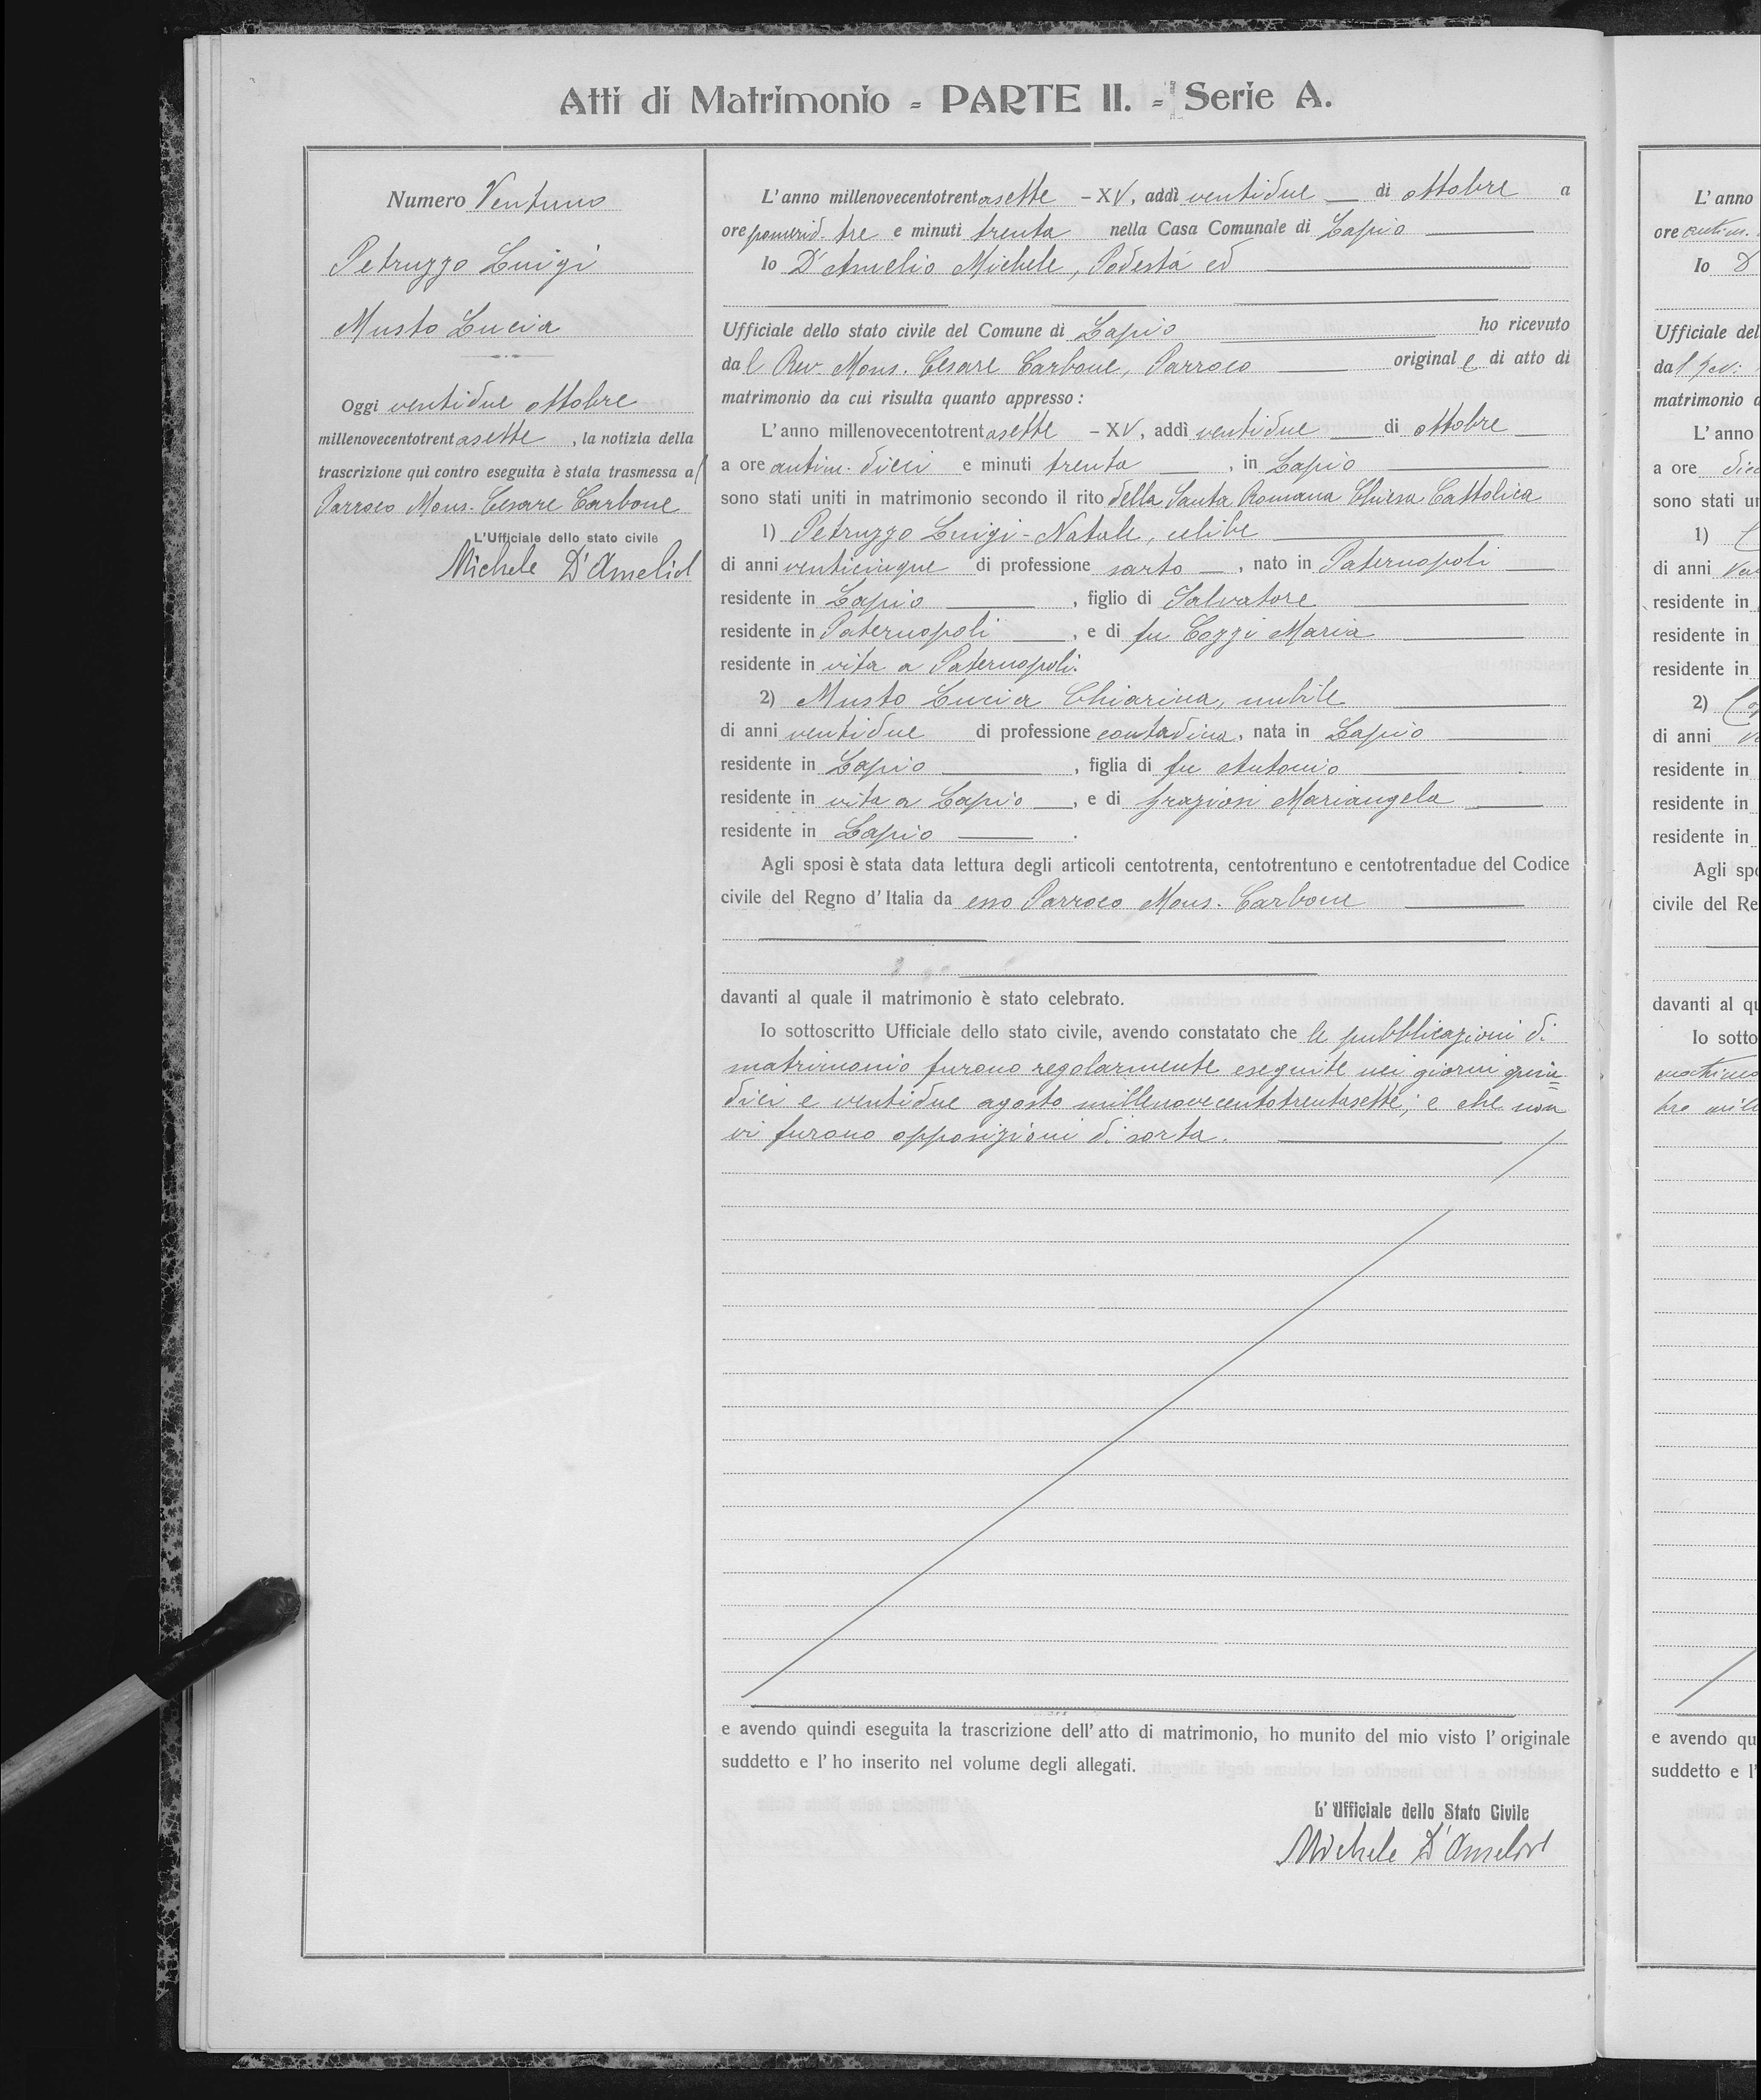 Atti di Matrimonio - PARTE II. - Serie A.
Numero Ventuno
Petruzzo Luigi
Musto Lucia
Oggi ventidue ottobre
millenovecentotrentasette, la notizia della
trascrizione qui contro eseguita è stata trasmessa al
Parroco Mons. Cesare Carbone
L'Ufficiale dello stato civile
Michele D'Amelio
L'anno millenovecentotrentasette - XV, addì ventidue di ottobre a
ore pomerid. tre e minuti trenta nella Casa Comunale di Lapio
Io D'Amelio Michele, Podestà ed
Ufficiale dello stato civile del Comune di Lapio ho ricevuto
dal Rev. Mons. Cesare Carbone, Parroco originale di atto di
matrimonio da cui risulta quanto appresso:
L'anno millenovecentotrentasette - XV, addì ventidue di ottobre
a ore antim. dieci e minuti trenta, in Lapio
sono stati uniti in matrimonio secondo il rito della Santa Romana Chiesa Cattolica
1) Petruzzo Luigi-Natale, celibe
di anni venticinque di professione sarto, nato in Paternopoli
residente in Lapio, figlio di Salvatore
residente in Paternopoli, e di fu Cozzi Maria
residente in vita a Paternopoli.
2) Musto Lucia Chiarina, nubile
di anni ventidue di professione contadina, nata in Lapio
residente in Lapio, figlia di fu Antonio
residente in vita a Lapio, e di Graziosi Mariangela
residente in Lapio.
Agli sposi è stata data lettura degli articoli centotrenta, centotrentuno e centotrentadue del Codice
civile del Regno d'Italia da esso Parroco Mons. Carbone
davanti al quale il matrimonio è stato celebrato.
Io sottoscritto Ufficiale dello stato civile, avendo constatato che le pubblicazioni di
matrimonio furono regolarmente eseguite nei giorni quin=
dici e ventidue agosto millenovecentotrentasette; e che non
vi furono opposizioni di sorta.
e avendo quindi eseguita la trascrizione dell'atto di matrimonio, ho munito del mio visto l'originale
suddetto e l'ho inserito nel volume degli allegati.
L'Ufficiale dello Stato Civile
Michele D'Amelio
L'anno
ore antim.
Io D
Ufficiale del
dal Rev:
matrimonio d
L'anno
a ore diec
sono stati un
1)
di anni
residente in
residente in
residente in
2)
di anni
residente in
residente in
residente in
Agli spo
civile del Re
davanti al qu
Io sotto
matrimo
bre mill
e avendo qu
suddetto e l'